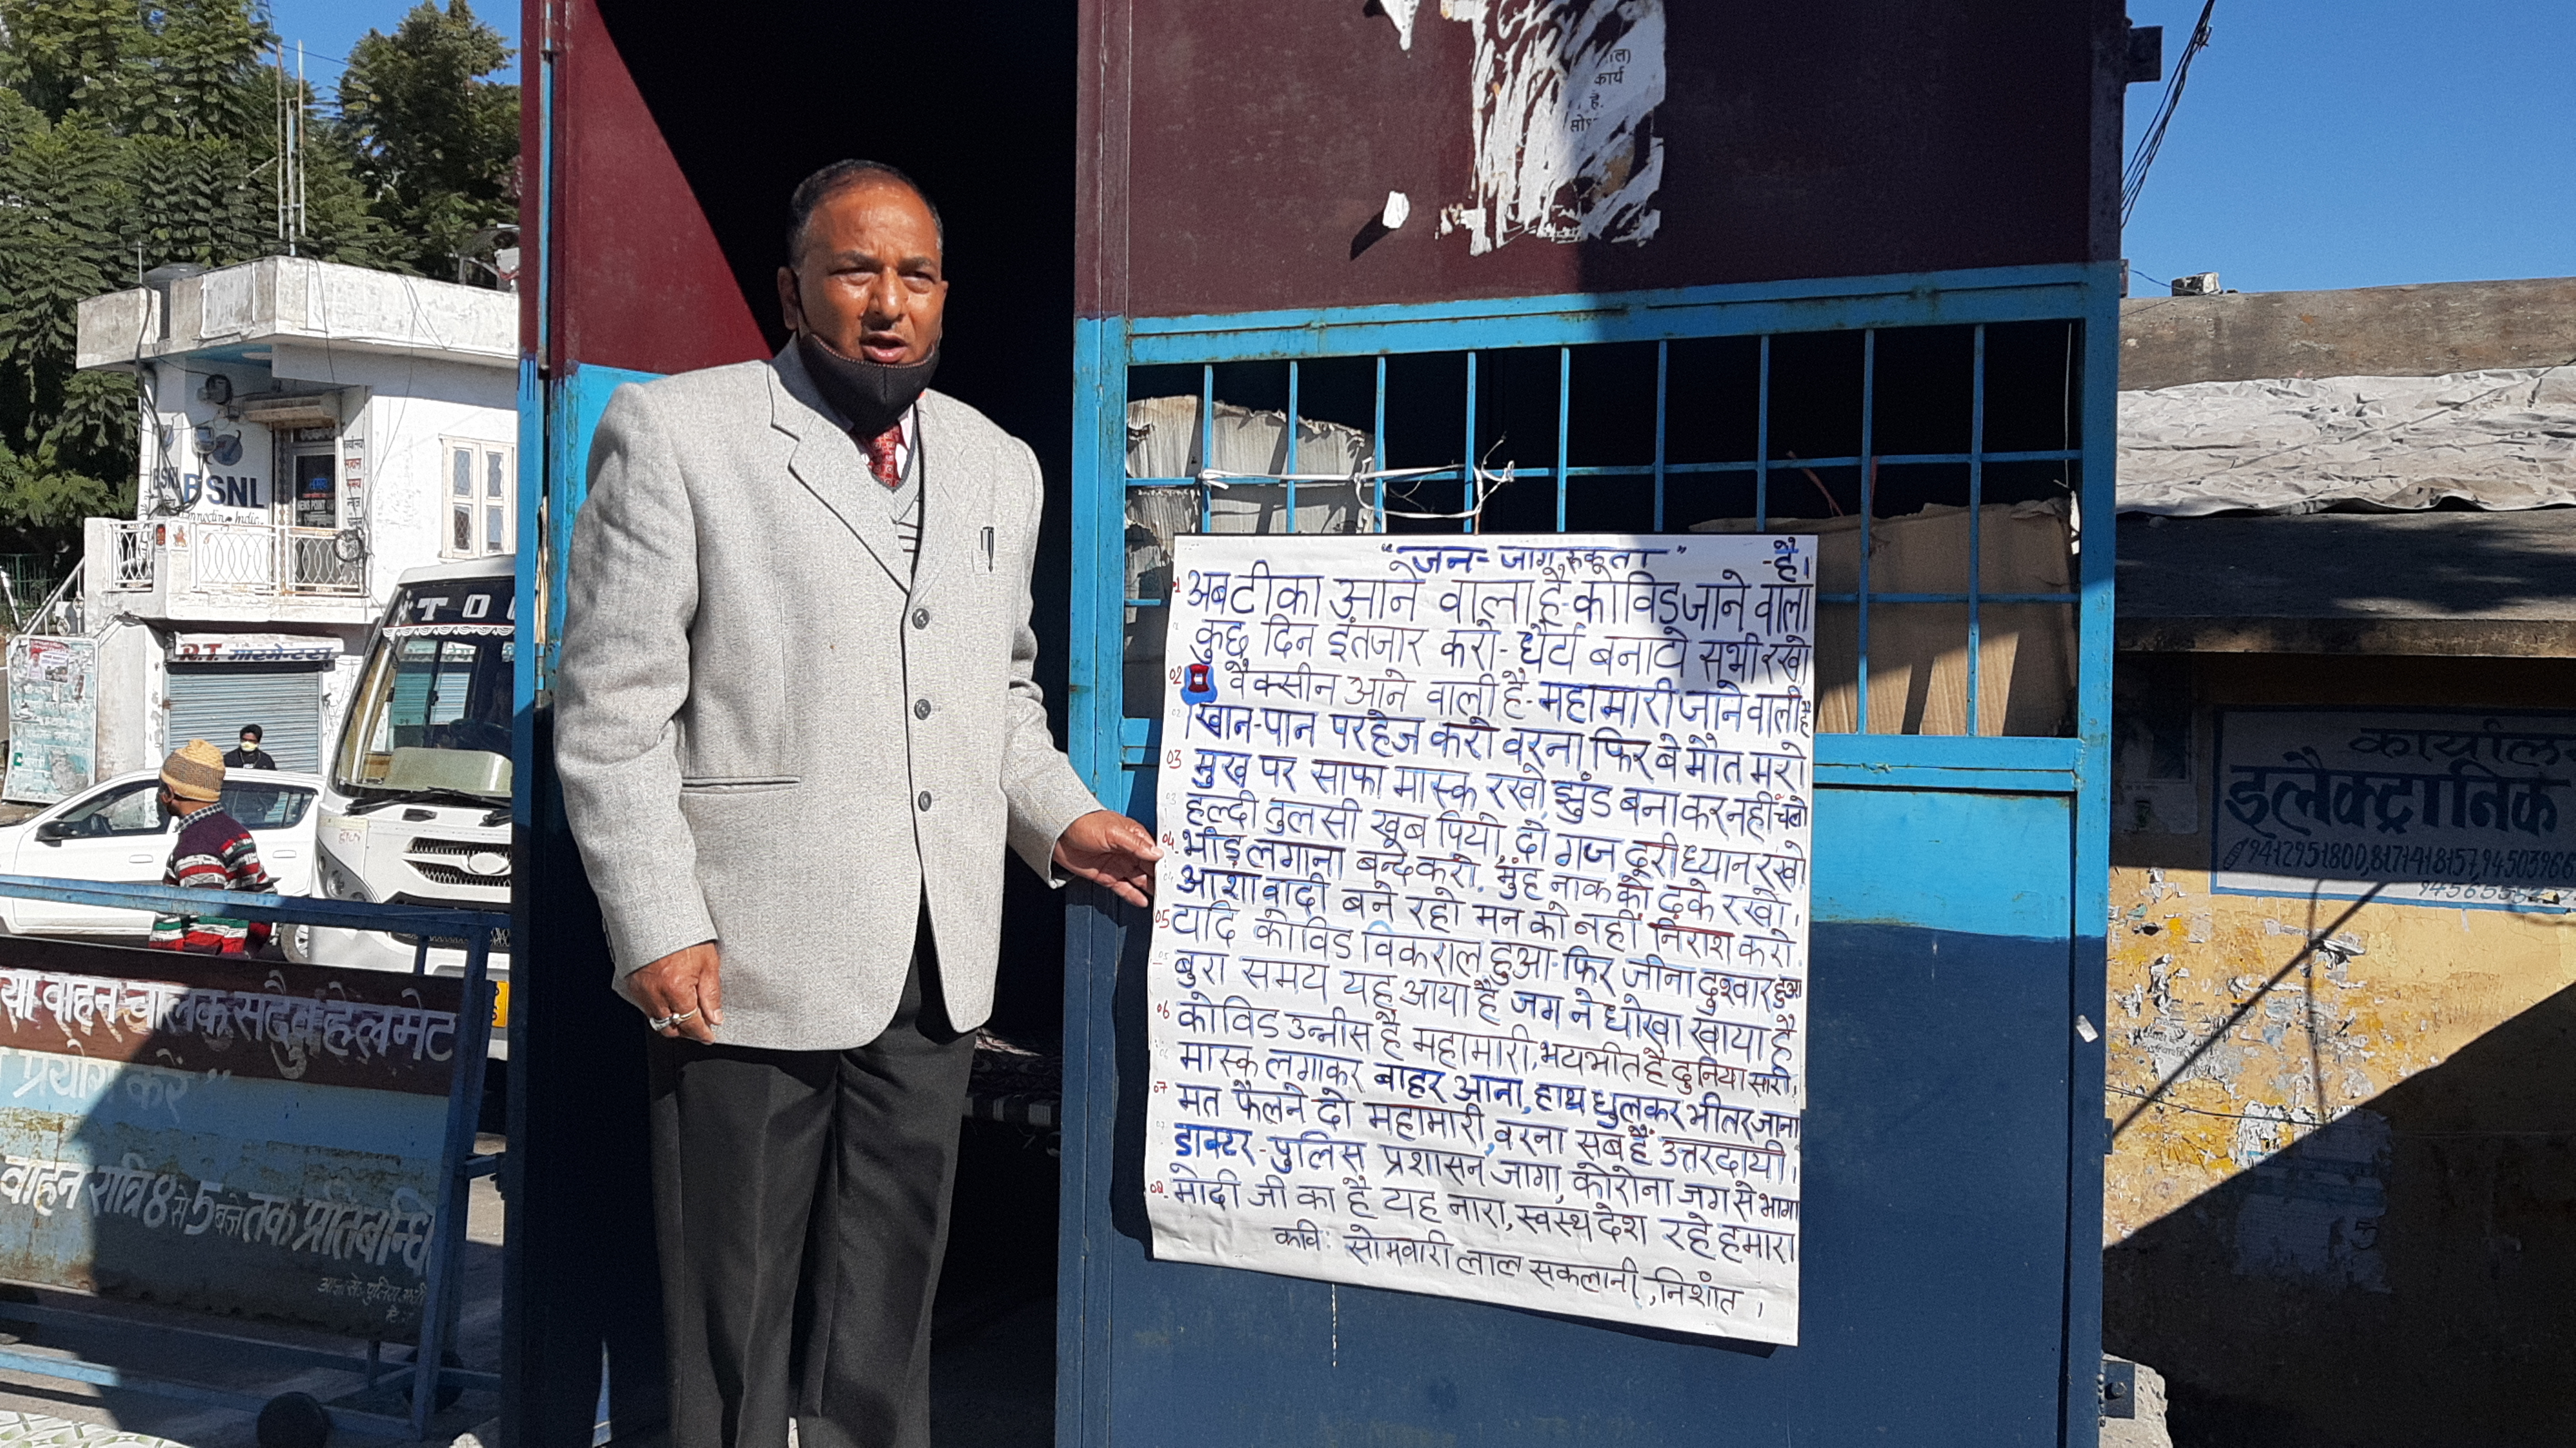 ाल)
कार्य
है.
BSNL
BSNL
NEWS POINT
R.T. गारमेन्टस
" जन-जागरुकता "
01 अब टीका आने वाला है-कोविड जाने वाला है।
कुछ दिन इंतजार करो- धैर्य बनाये सभी रखो
02 वैक्सीन आने वाली है-महामारी जाने वाली है
02 खान-पान परहेज करो वरना फिर बे मौत मरो
03 मुख पर साफा मास्क रखो झुंड बनाकर नहीं चलो
03 हल्दी तुलसी खूब पियो दो गज दूरी ध्यान रखो
04. भीड़ लगाना बन्द करो. मुंह नाक को ढ़के रखो।
04 आशावादी बने रहो मन को नहीं निराश करो.
05 यदि कोविड विकराल हुआ-फिर जीना दुश्वार हुआ
05 बुरा समय यह आया है जग ने धोखा खाया है
06 कोविड उन्नीस है महामारी, भयभीत है दुनिया सारी।
06 मास्क लगाकर बाहर आना, हाथ धुलकर भीतर जाना
07 मत फैलने दो महामारी, वरना सब हैं उत्तरदायी।
07 डाक्टर-पुलिस प्रशासन जागा, कोरोना जग से भागा
08. मोदी जी का है यह नारा, स्वस्थ देश रहे हमारा
कवि: सोमवारी लाल सकलानी, निशांत।
या वाहन चालक सदैव हेलमेट
प्रयोग करें"
वाहन रात्रि 8 से 5 बजे तक प्रतिबन्धि
कार्याल
इलैक्ट्रानिक